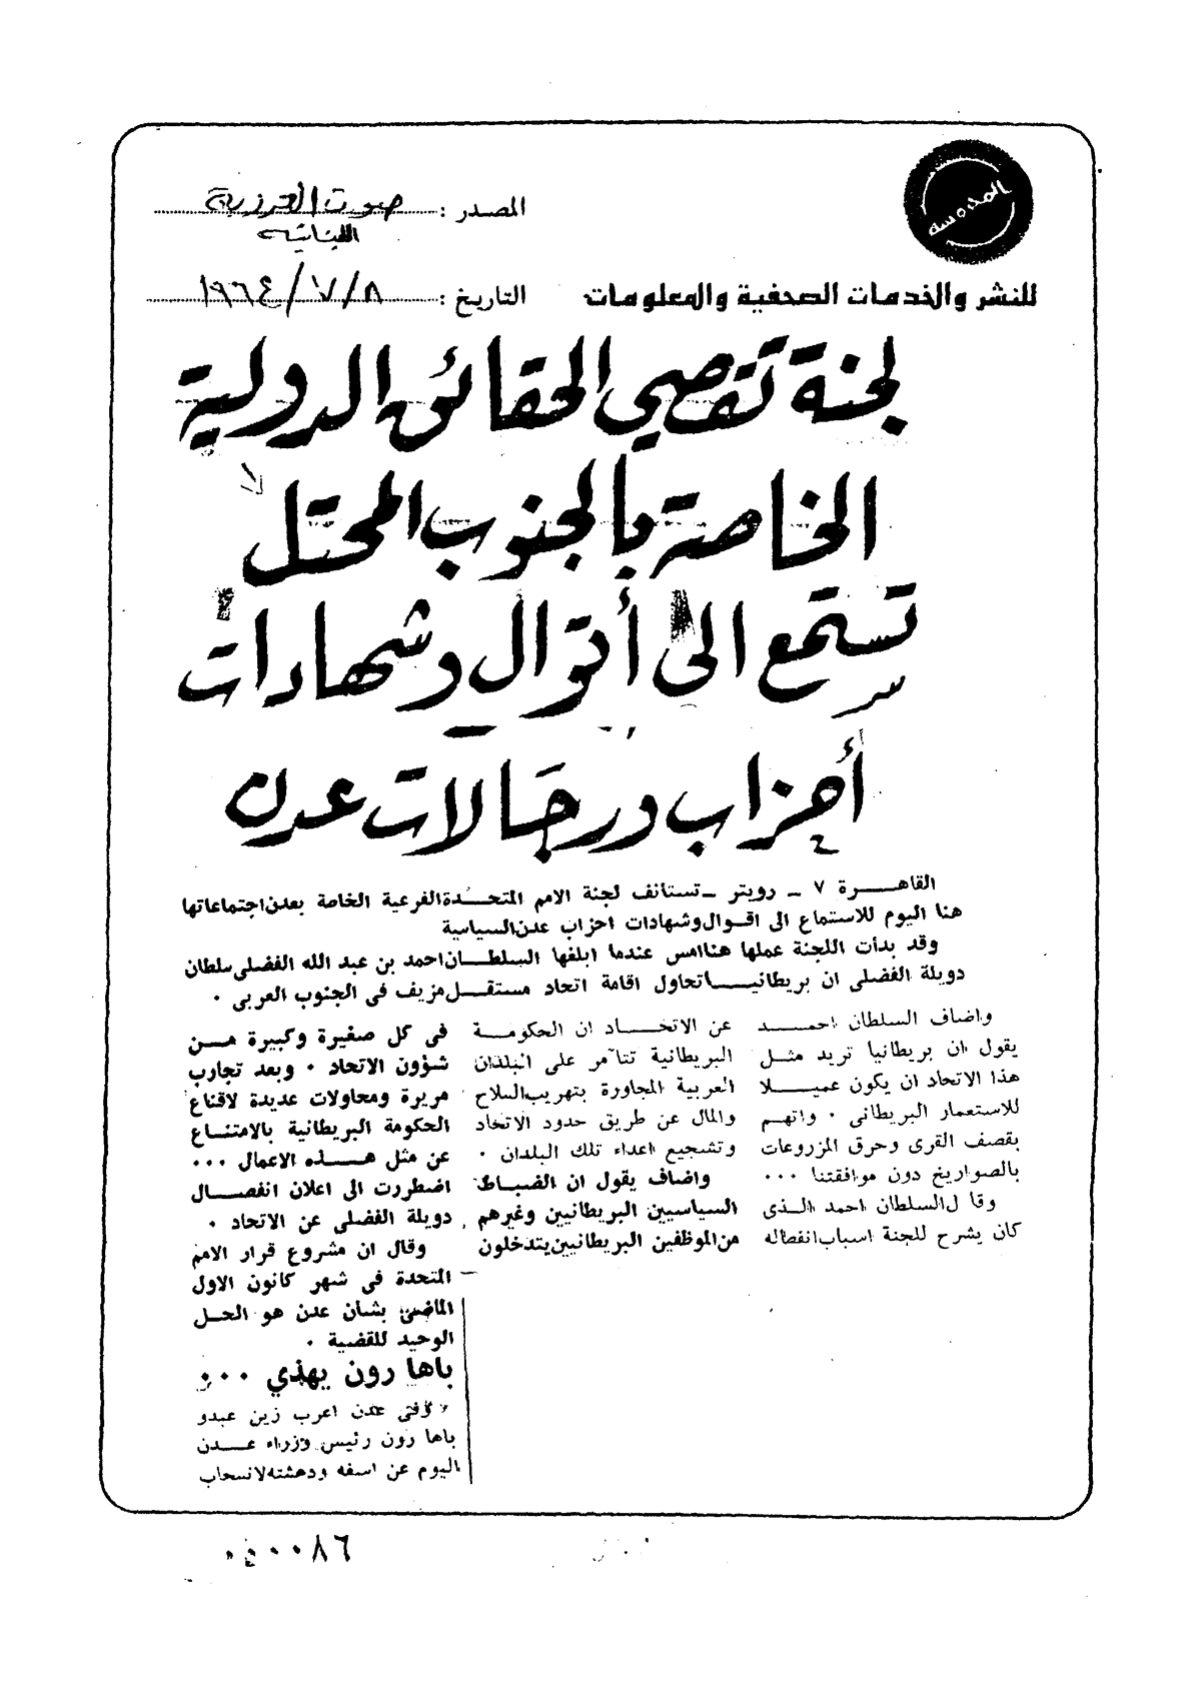 المدوسة
المصدر : صوت العروبة
اللبنانية
للنشر والخدمات الصحفية والمعلومات
التاريخ : ٨/٧/١٩٦٤
لجنة تقصي الحقائق الدولية
الخاصة بالجنوب المحتل
تستمع الى أقوال وشهادات
أحزاب ورجالات عدن
القاهرة ٧ - رويتر - تستانف لجنة الامم المتحدة الفرعية الخاصة بعدن اجتماعاتها
هنا اليوم للاستماع الى اقوال وشهادات احزاب عدن السياسية
وقد بدأت اللجنة عملها هنا امس عندما ابلغها السلطان احمد بن عبد الله الفضلى سلطان
دويلة الفضلى ان بريطانيا تحاول اقامة اتحاد مستقل مزيف فى الجنوب العربى ٠
واضاف السلطان احمد
يقول ان بريطانيا تريد مثل
هذا الاتحاد ان يكون عميلا
للاستعمار البريطانى ٠ واتهم
بقصف القرى وحرق المزروعات
بالصواريخ دون موافقتنا ٠٠٠
وقال السلطان احمد الذى
كان يشرح للجنة اسباب انفصاله
عن الاتحاد ان الحكومة
البريطانية تتآمر على البلدان
العربية المجاورة بتهريب السلاح
والمال عن طريق حدود الاتحاد
وتشجيع اعداء تلك البلدان ٠
واضاف يقول ان الضباط
السياسيين البريطانيين وغيرهم
من الموظفين البريطانيين يتدخلون
فى كل صغيرة وكبيرة من
شؤون الاتحاد ٠ وبعد تجارب
مريرة ومحاولات عديدة لاقناع
الحكومة البريطانية بالامتناع
عن مثل هذه الاعمال ٠٠٠
اضطررت الى اعلان انفصال
دويلة الفضلى عن الاتحاد ٠
وقال ان مشروع قرار الامم
المتحدة فى شهر كانون الاول
الماضى بشان عدن هو الحل
الوحيد للقضية ٠
باها رون يهذي ٠٠٠
وفى عدن اعرب زين عبدو
باها رون رئيس وزراء عدن
اليوم عن اسفه ودهشته لانسحاب